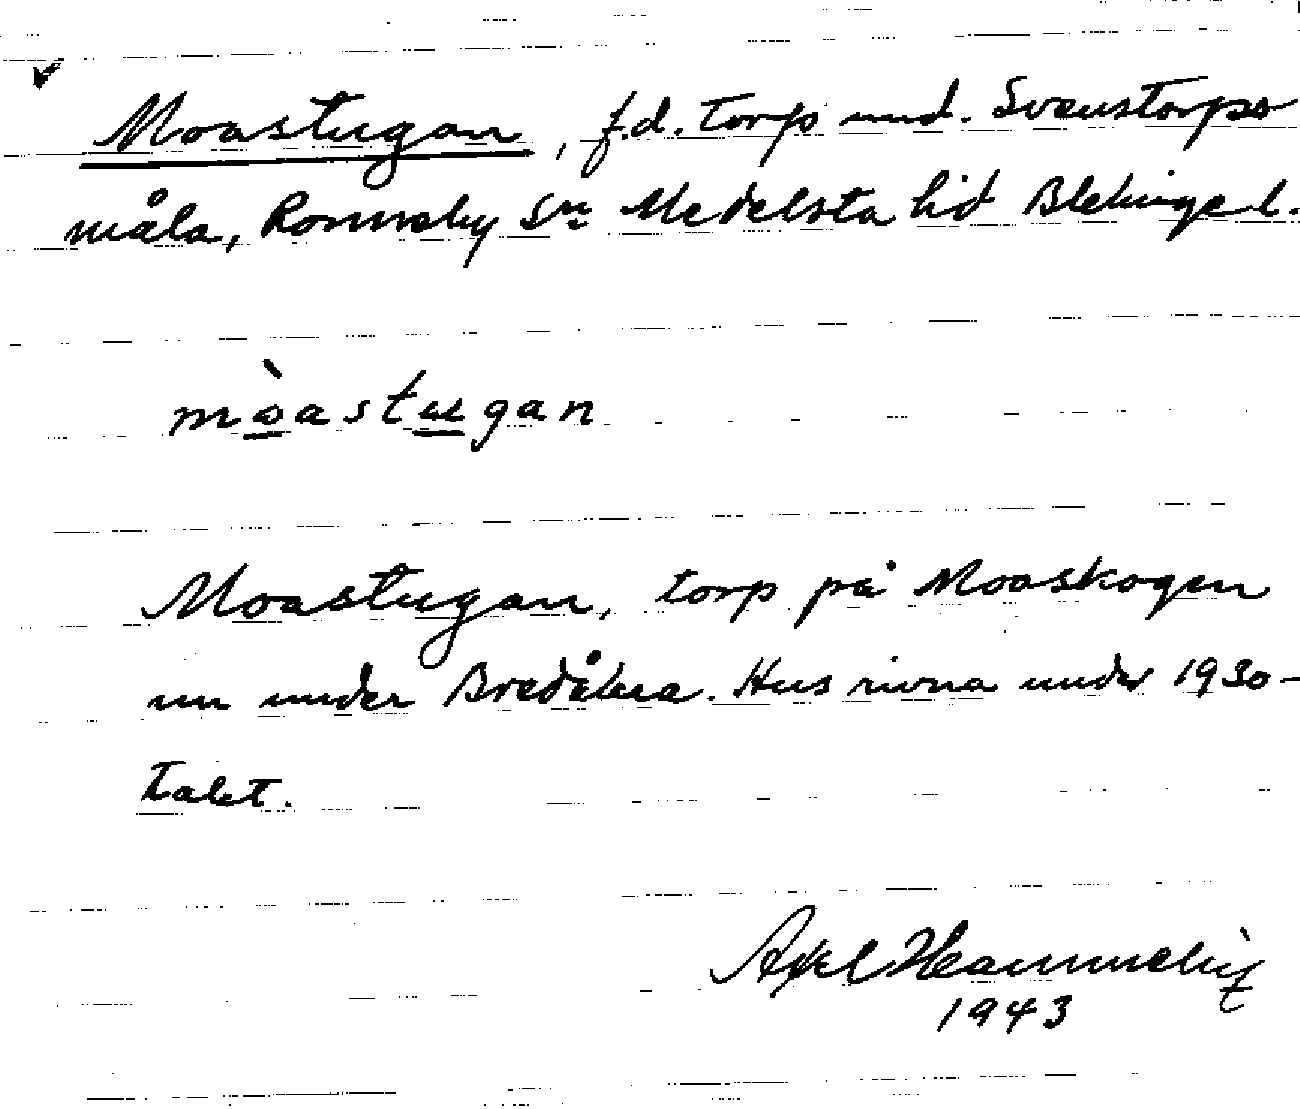 Moastugan, f.d. torp und. Svenstorps
måla, Ronneby Sn Medelsta hd Blekinge l.
mòastugan
Moastugan, torp på Moaskogen
nu under Bredåkra. Hus rivna under 1930-
talet.
Axel
1943